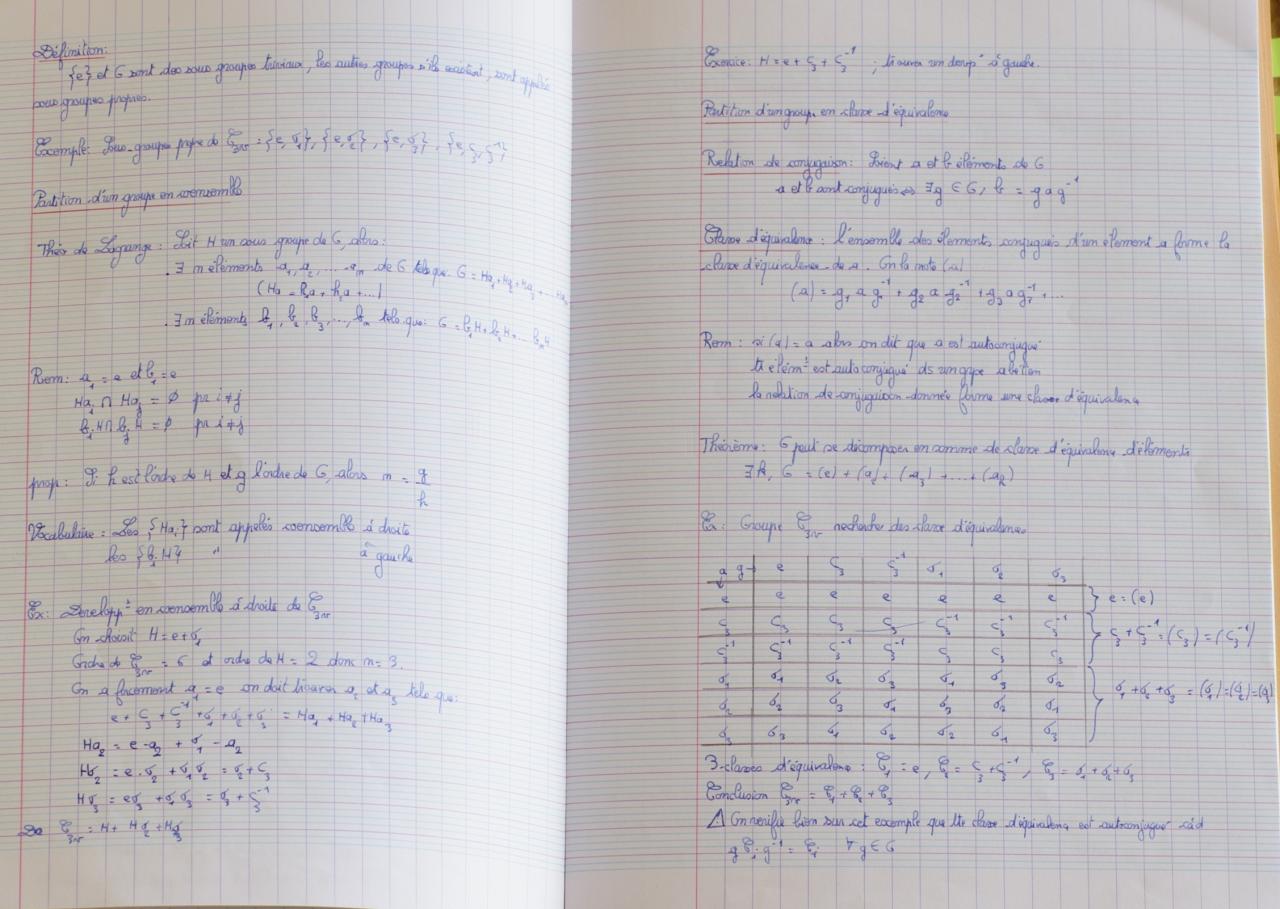 Définition:
{e} et G sont des sous groupes triviaux, les autres groupes s'ils existent, sont appelés
sous groupes propres.
Exemple: Sous-groupes propre de C₃ᵥ = {e, σ₁}, {e, σ₂}, {e, σ₃}, {e, C₃, C₃⁻¹}
Partition d'un groupe en coensemble
Théo de Lagrange: Soit H un sous groupe de G, alors:
. ∃ m éléments a₁, a₂, ... aₘ de G tels que. G = Ha₁ + Ha₂ + Ha₃ + ... Haₘ
(Ha = h₁a + h₂a + ...)
. ∃ m éléments b₁, b₂, b₃, ..., bₘ tels que: G = b₁H + b₂H + ... bₘH
Rem: a₁ = e et b₁ = e
Haᵢ ∩ Haⱼ = ∅ pr i ≠ j
bᵢH ∩ bⱼH = ∅ pr i ≠ j
prop: Si h est l'ordre de H et g l'ordre de G, alors m = g/h
Vocabulaire: Les {Haᵢ} sont appelés coensemble à droite
les {bᵢH} " à gauche
Ex: Developpᵗ en coensemble à droite de C₃ᵥ
On choisit H = e + σ₁
Ordre de C₃ᵥ = 6 et ordre de H = 2 donc m = 3.
On a forcement a₁ = e on doit trouver a₂ et a₃ tels que:
e + C₃ + C₃⁻¹ + σ₁ + σ₂ + σ₃ = Ha₁ + Ha₂ + Ha₃
Ha₂ = e·a₂ + σ₁ - a₂
Hσ₂ = e·σ₂ + σ₁σ₂ = σ₂ + C₃
Hσ₃ = eσ₃ + σ₁σ₃ = σ₃ + C₃⁻¹
C₃ᵥ = H + Hσ₂ + Hσ₃
Exercice: H = e + C₃ + C₃⁻¹ ; trouver un devpᵗ à gauche.
Partition d'un groupe en classe d'équivalence
Relation de conjugaison: Soient a et b éléments de G
a et b sont conjugués ⇔ ∃g ∈ G, b = g a g⁻¹
Classe d'équivalence: l'ensemble des éléments conjugués d'un élément a forme la
classe d'équivalence de a. On la note (a)
(a) = g₁ a g₁⁻¹ + g₂ a g₂⁻¹ + g₃ a g₃⁻¹ + ...
Rem: si (a) = a alors on dit que a est autoconjugué
tt élémᵗ est autoconjugué ds un grpe abélien
la relation de conjugaison donnée forme une classe d'équivalence
Théorème: G peut se décomposer en somme de classe d'équivalence d'éléments
∃ k, G = (e) + (a₂) + (a₃) + ... + (aₖ)
Ex: Groupe C₃ᵥ rechercher des classe d'équivalences
a g→ e C₃ C₃⁻¹ σ₁ σ₂ σ₃
e e e e e e e } e = (e)
C₃ C₃ C₃ C₃ C₃⁻¹ C₃⁻¹ C₃⁻¹ } C₃ + C₃⁻¹ = (C₃) = (C₃⁻¹)
C₃⁻¹ C₃⁻¹ C₃⁻¹ C₃⁻¹ C₃ C₃ C₃
σ₁ σ₁ σ₂ σ₃ σ₁ σ₃ σ₂ } σ₁ + σ₂ + σ₃ = (σ₁) = (σ₂) = (σ₃)
σ₂ σ₂ σ₃ σ₁ σ₃ σ₂ σ₁
σ₃ σ₃ σ₁ σ₂ σ₂ σ₁ σ₃
3-classes d'équivalence: C₁ = e, C₂ = C₃ + C₃⁻¹, C₃ = σ₁ + σ₂ + σ₃
Conclusion C₃ᵥ = C₁ + C₂ + C₃
⚠ On verifie bien sur cet exemple que tte classe d'équivalence est autoconjugué càd
g Cᵢ g⁻¹ = Cᵢ ∀ g ∈ G